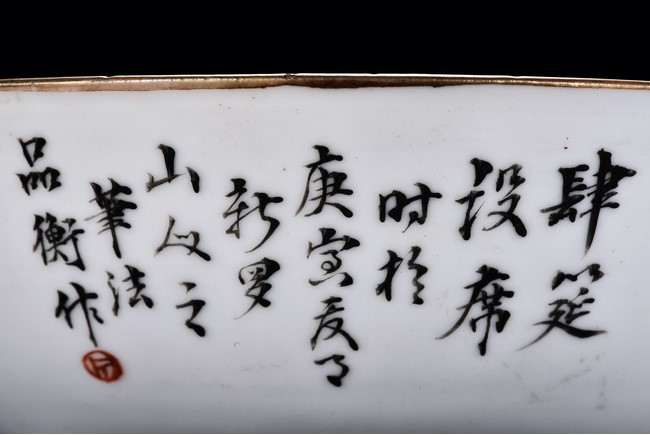 肆筵
设席
时於
庚寅夏月
新罗
山人之
筆法
品衡作